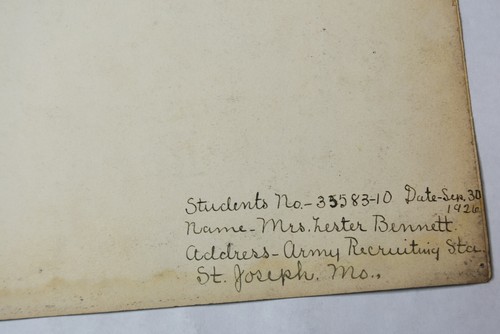 Students No.-33583-10 Date-Sep. 30
1926
Name-Mrs. Lester Bennett.
Address-Army Recruiting Sta.
St. Joseph. Mo..